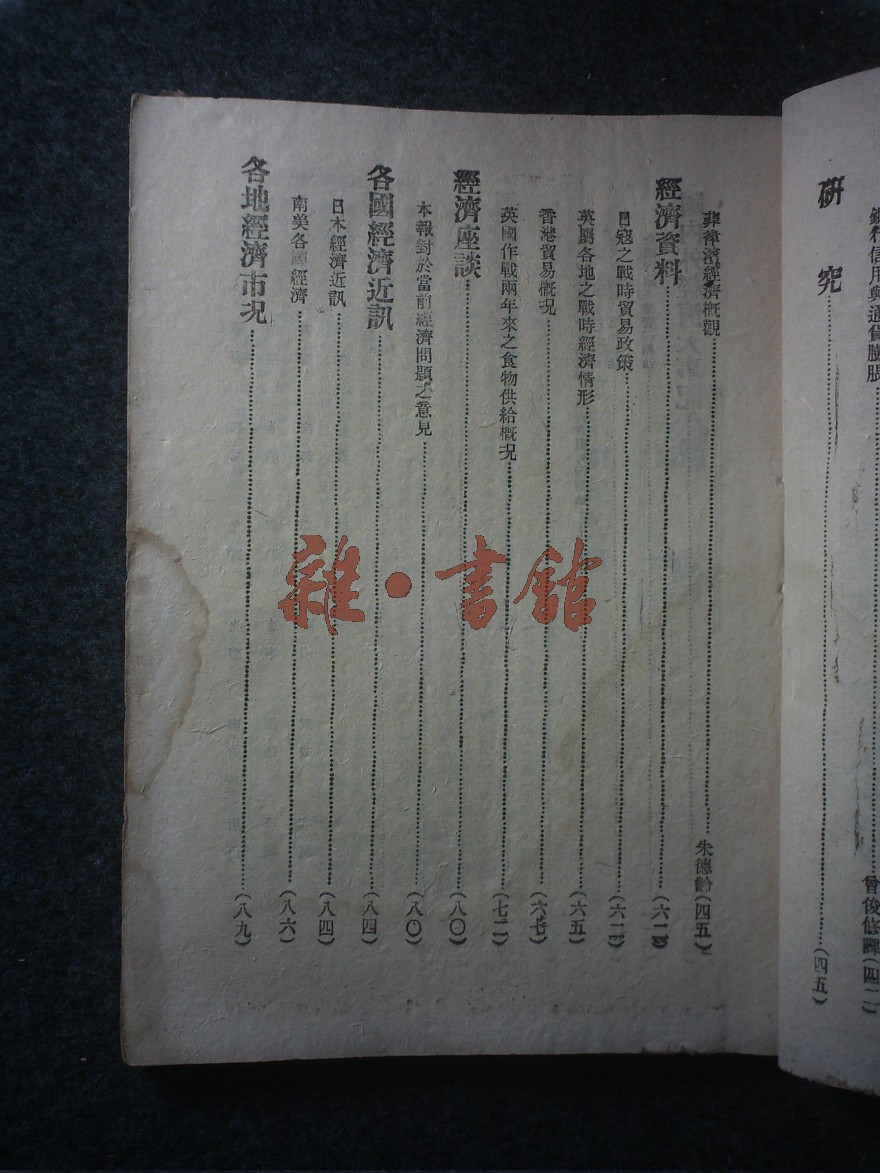 銀行信用與通貨膨脹……曾俊修譯(四二)
研究……(四五)
菲律濱經濟概觀……朱德齡(四五)
經濟資料……(六二)
日寇之戰時貿易政策……(六二)
英屬各地之戰時經濟情形……(六五)
香港貿易概況……(六七)
英國作戰兩年來之食物供給概況……(七二)
經濟座談……(八〇)
本報對於當前經濟問題之意見……(八〇)
各國經濟近訊……(八四)
日本經濟近訊……(八四)
南美各國經濟……(八六)
各地經濟市况……(八九)
雜·書館